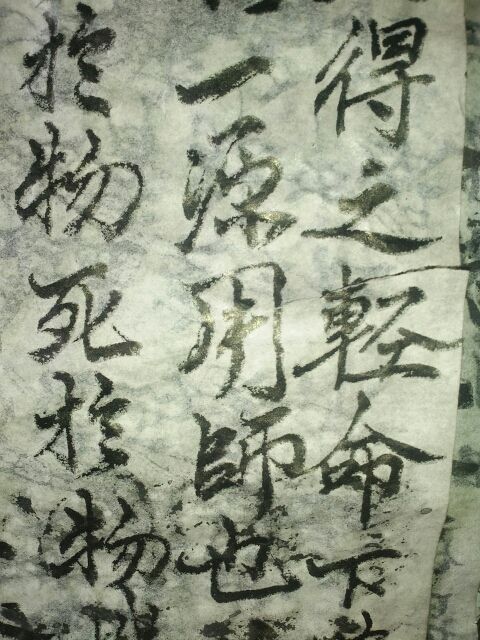 得之輕命
一源用師也
於物死於物